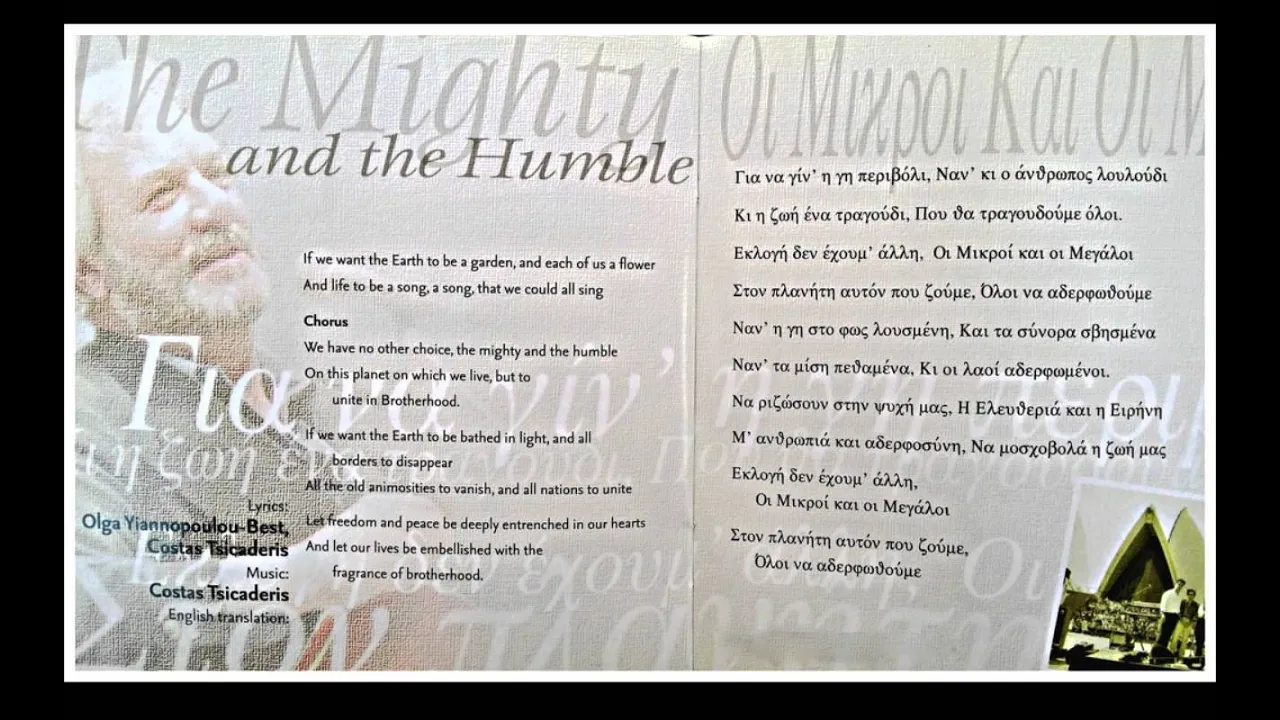 The Mighty
and the Humble
If we want the Earth to be a garden, and each of us a flower
And life to be a song, a song, that we could all sing
Chorus
We have no other choice, the mighty and the humble
On this planet on which we live, but to
unite in Brotherhood.
If we want the Earth to be bathed in light, and all
borders to disappear
All the old animosities to vanish, and all nations to unite
Let freedom and peace be deeply entrenched in our hearts
And let our lives be embellished with the
fragrance of brotherhood.
Lyrics:
Olga Yiannopoulou-Best,
Costas Tsicaderis
Music:
Costas Tsicaderis
English translation:
Οι Μικροι Και Οι Μ
Για να γίν' η γη περιβόλι, Ναν' κι ο άνθρωπος λουλούδι
Κι η ζωή ένα τραγούδι, Που θα τραγουδούμε όλοι.
Εκλογή δεν έχουμ' άλλη, Οι Μικροί και οι Μεγάλοι
Στον πλανήτη αυτόν που ζούμε, Όλοι να αδερφωθούμε
Ναν' η γη στο φως λουσμένη, Και τα σύνορα σβησμένα
Ναν' τα μίση πεθαμένα, Κι οι λαοί αδερφωμένοι.
Να ριζώσουν στην ψυχή μας, Η Ελευθεριά και η Ειρήνη
Μ' ανθρωπιά και αδερφοσύνη, Να μοσχοβολά η ζωή μας
Εκλογή δεν έχουμ' άλλη,
Οι Μικροί και οι Μεγάλοι
Στον πλανήτη αυτόν που ζούμε,
Όλοι να αδερφωθούμε
Για να γίν' η γη περι
ι η ζωή
έχουμ'
Στον πλαν